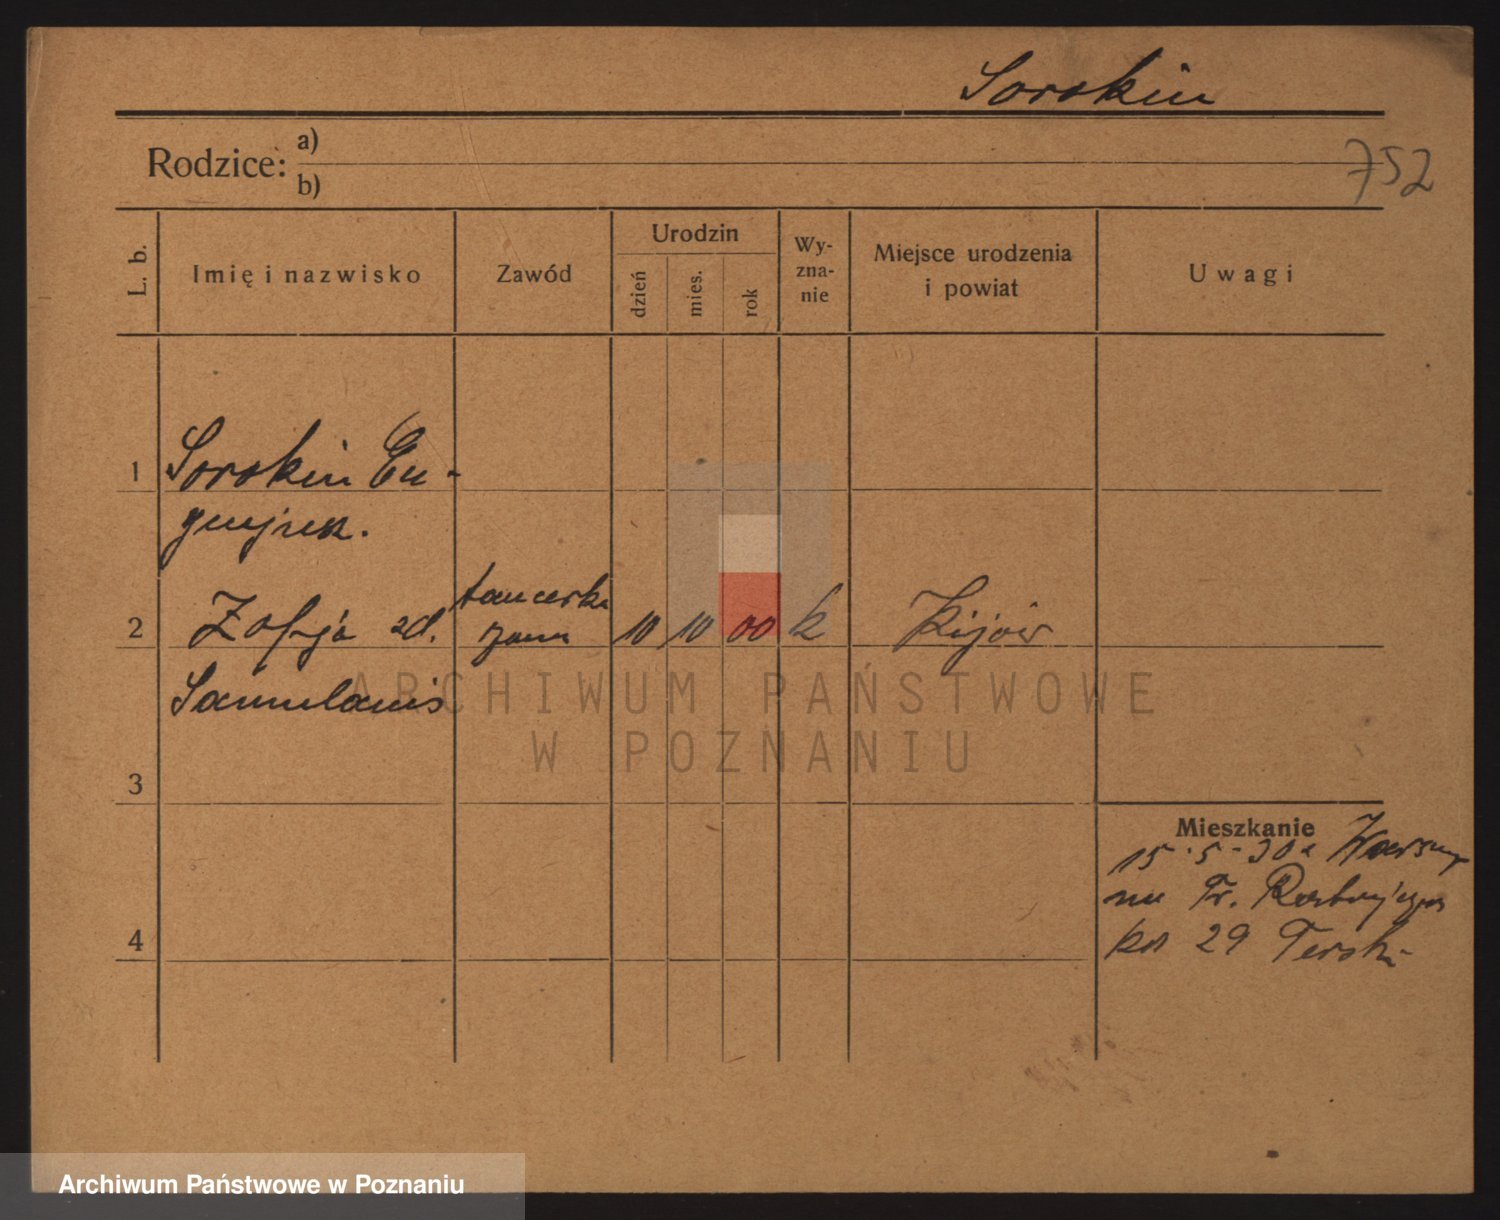 Sorokin
Rodzice: a)
b)
752
L. b.
Imię i nazwisko
Zawód
Urodzin
dzień
mies.
rok
Wy-
zna-
nie
Miejsce urodzenia
i powiat
Uwagi
1 Sorokin Eu-
genjusz.
2 Zofja zd. tancerka 10 10 00 k Kijów
Samulanis
ARCHIWUM PAŃSTWOWE
W POZNANIU
3
Mieszkanie
15.5-30 z Warszawy
na Fr. Ratajcza
ka 29
4
Archiwum Państwowe w Poznaniu